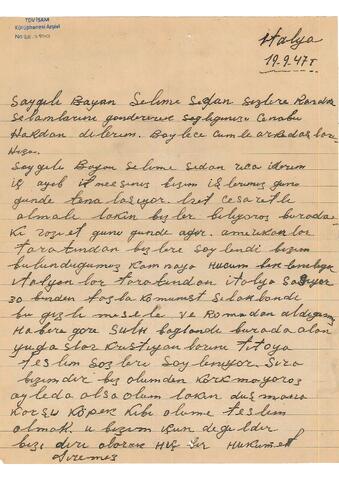 TDV İSAM
Kütüphanesi Arşivi
No
italya
19.9.47 T
Saygılı Bayan Selime Sedan Sizlere Kandan
Selamlarını göndererek sağlığınızı Cenabu
Hakdan dilerim. Boylece cumle arkadaşların
Saygılı Bayan Selime Sidan rica iderim
iş ayıb itmeesiniz bizim işlerimiz günü
günde fena laşıyor. cesaretle
olmalı lakin bizler biliyoros burada
ki vaziet gunu gunde ağır. amerikanlar
tarafından bizlere soylendi bizim
bulundugumuz kampaya hucum
italyan lar tarafından italya
30 binden fazla komunist Selahlandi
bu gizli mesele ve Romadan aldıgımız
Habere göre Sulh baglandi burada olan
yugoslav kristiyan larını titoya
teslim sozleri Soyleniyor. Sıra
bizimdir biz olumden korkmayoroz
oyleda olsa olum lakin duşmana
karşu köpek kibi olume teslim
olmak. u bizim içun degilder
bizi diri olarak Hiç bir Hukumet